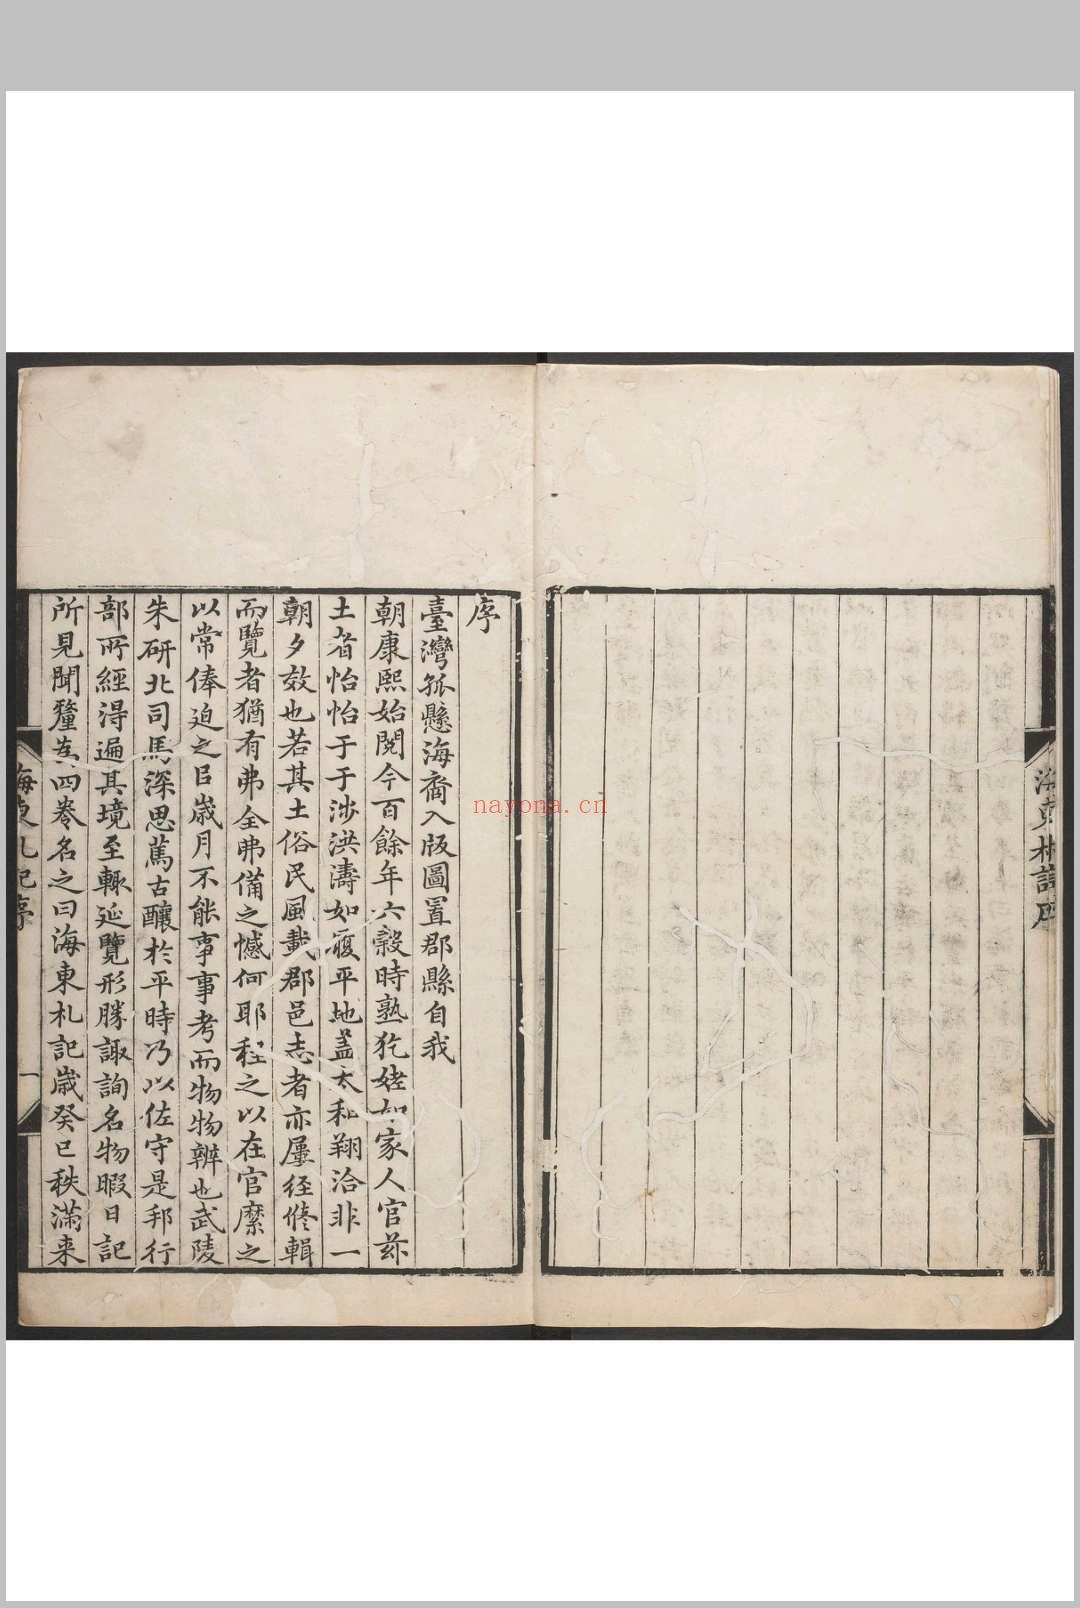 海東札記序
序
臺灣孤懸海裔入版圖置郡縣自我
朝康熙始閱今百餘年六穀時熟犵姥如家人官茲
土者怡怡于于涉洪濤如履平地蓋太和翔洽非一
朝夕效也若其土俗民風載郡邑志者亦屢経修輯
而覽者猶有弗全弗備之憾何耶程之以在官縻之
以常俸迫之㠯歲月不能事事考而物物辨也武陵
朱研北司馬深思篤古釀於平時乃以佐守是邦行
部所經淂遍其境至輙延覽形勝諏詢名物暇日記
所見聞釐為四卷名之曰海東札記歲癸巳秩滿来
海東札記序
一
nayona.cn